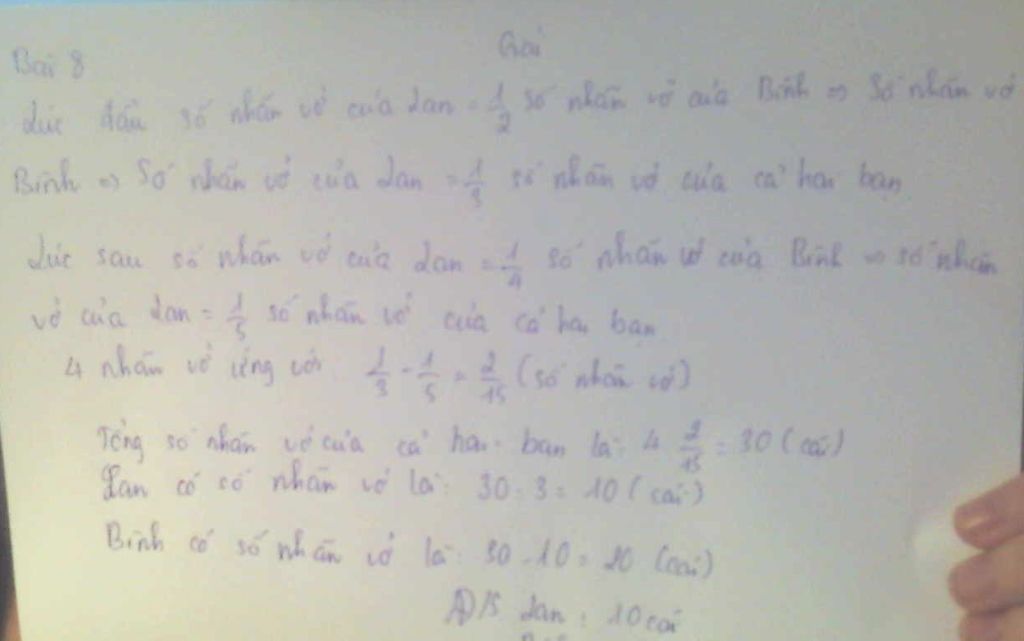 Giải
Bài 8
Lúc đầu số nhãn vở của Lan = 1/2 số nhãn vở của Bình => Số nhãn vở
Bình => Số nhãn vở của Lan = 1/3 số nhãn vở của cả hai bạn
Lúc sau số nhãn vở của Lan = 1/4 số nhãn vở của Bình => số nhãn
vở của Lan = 1/5 số nhãn vở của cả hai bạn
4 nhãn vở ứng với 1/3 - 1/5 = 2/15 (số nhãn vở)
Tổng số nhãn vở của cả hai bạn là: 4 : 2/15 = 30 (cái)
Lan có số nhãn vở là: 30 : 3 = 10 (cái)
Bình có số nhãn vở là: 30 - 10 = 20 (cái)
Đ/S Lan : 10 cái